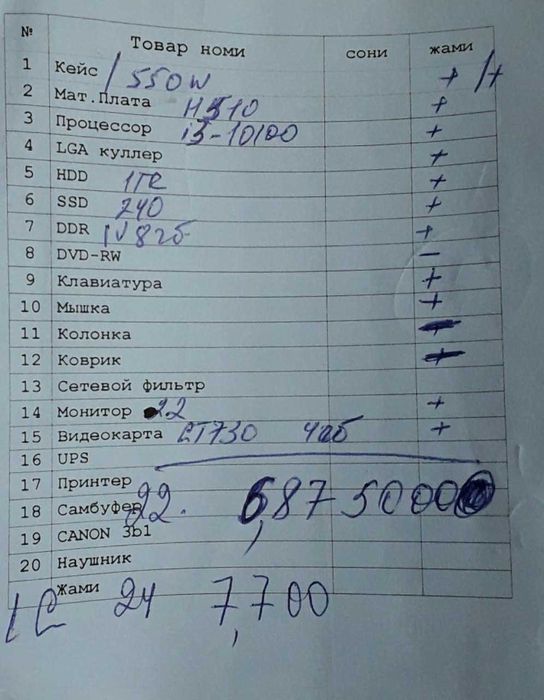 № Товар номи сони жами
1 Кейс / 550W + /+
2 Мат.Плата H510 +
3 Процессор i3-10100 +
4 LGA куллер +
5 HDD 1TB +
6 SSD 240 +
7 DDR IV 8гб +
8 DVD-RW –
9 Клавиатура +
10 Мышка +
11 Колонка +
12 Коврик +
13 Сетевой фильтр
14 Монитор 22 +
15 Видеокарта GT730 4гб +
16 UPS
17 Принтер
18 Самбуфер 22. 6,8750000
19 CANON 3b1
20 Наушник
Жами 24 7,700